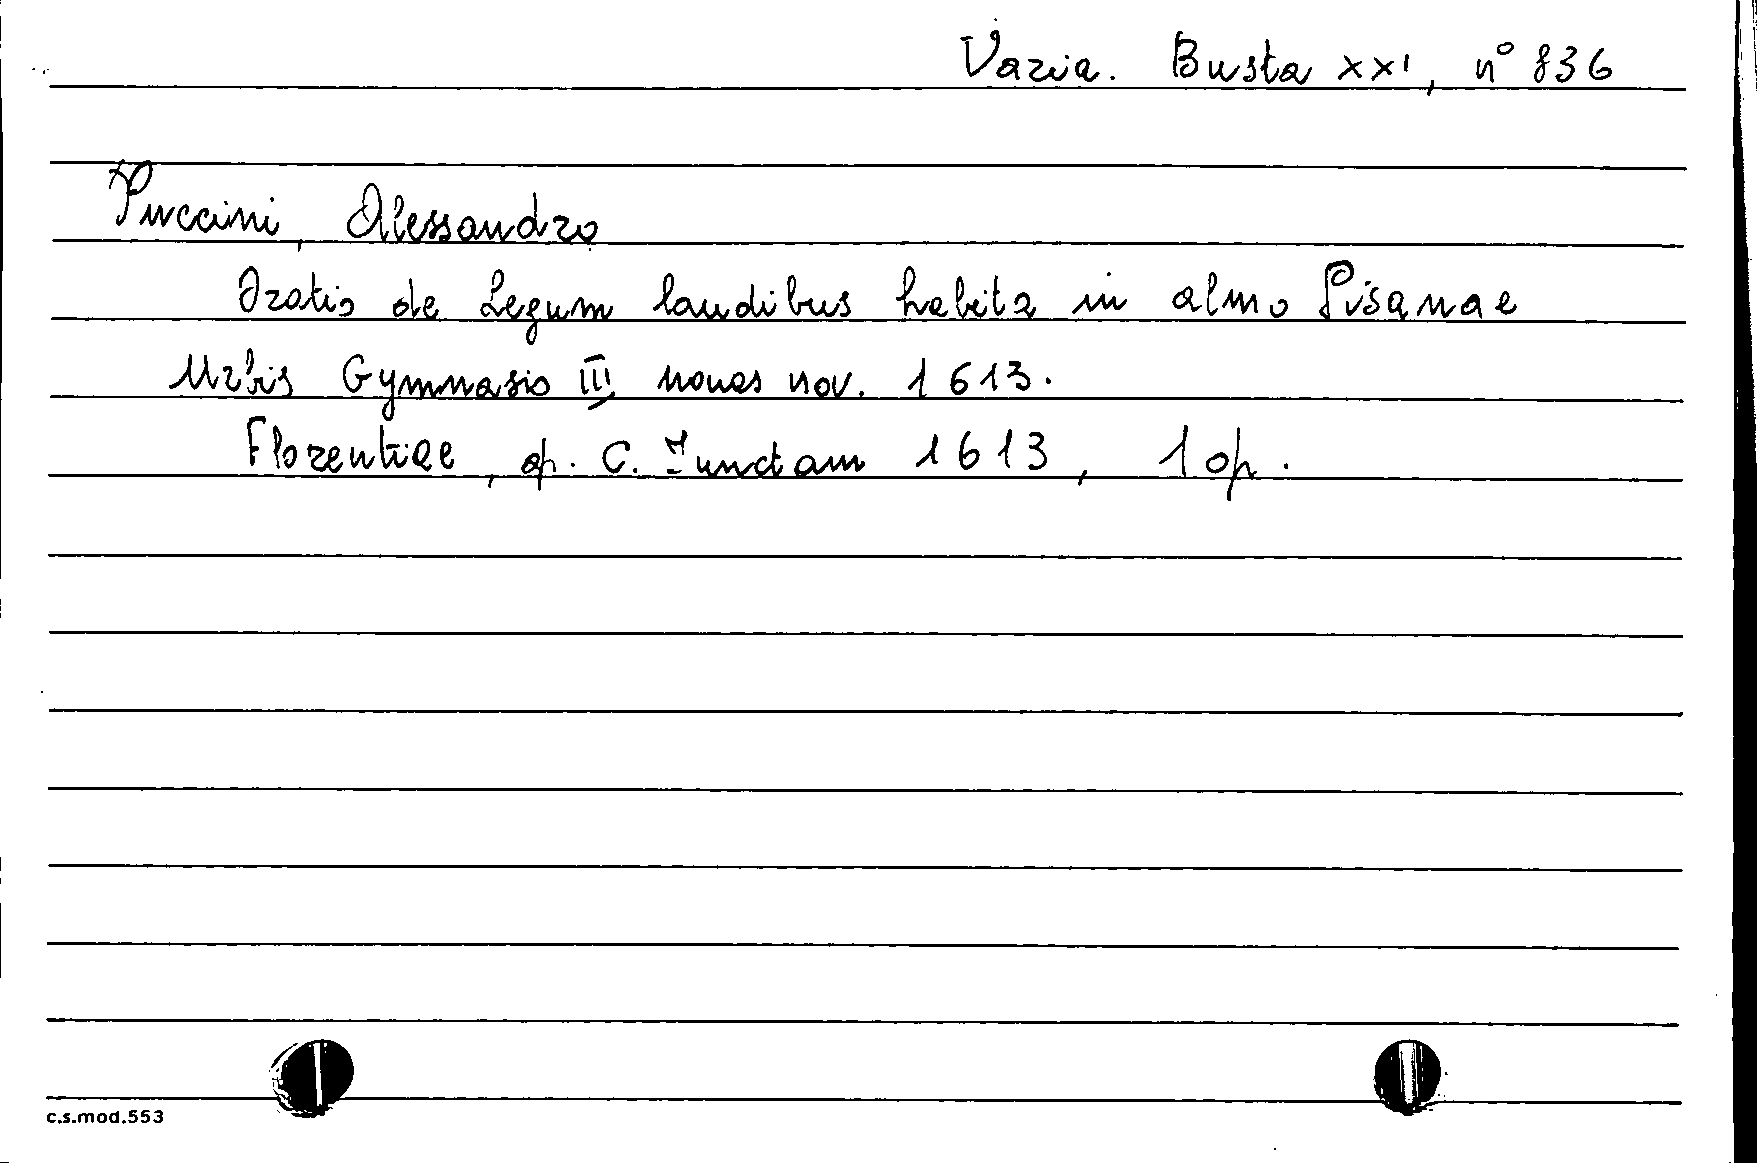 Varia. Busta XXI, n° 836
Puccini, Alessandro
Oratio de Legum laudibus habita in almo Pisanae
Urbis Gymnasio III nonas nov. 1613.
Florentiae, ap. C. Junctam 1613, 1 op.
c.s.mod.553